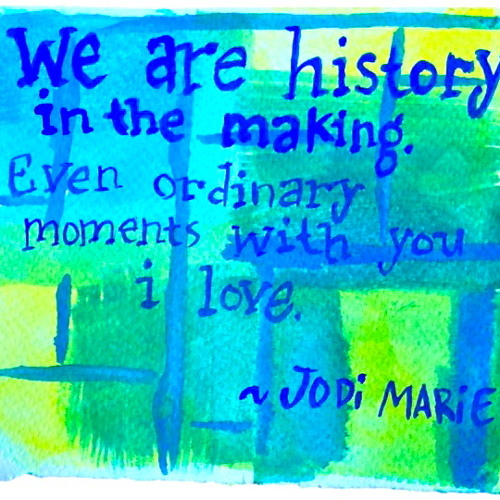 We are history
in the making.
Even ordinary
moments with you
i love.
~ JODi MARiE